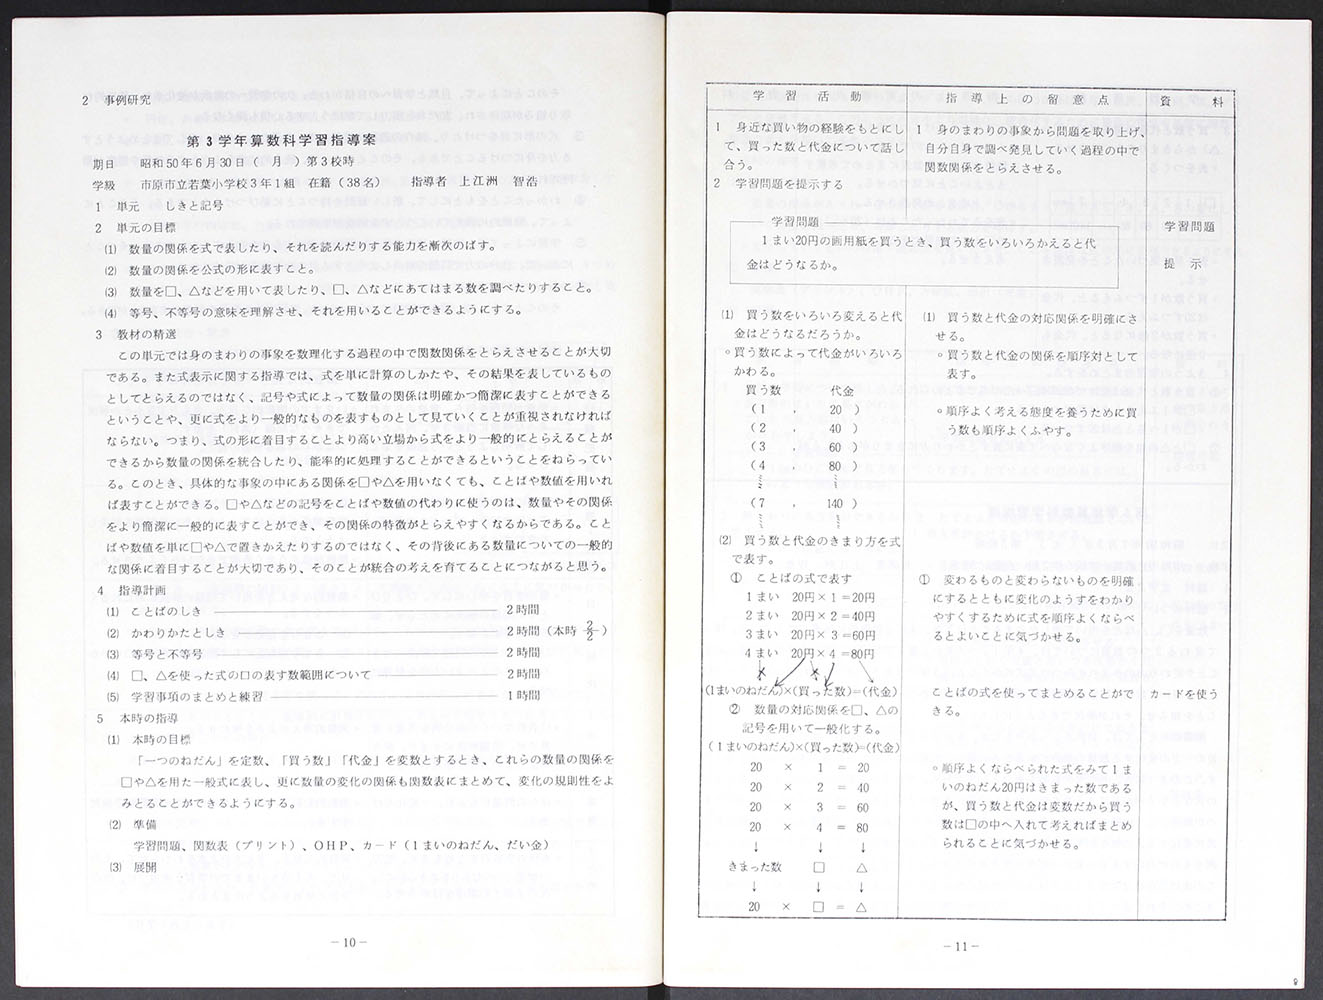 2　事例研究
第3学年算数科学習指導案
期日　昭和50年6月30日（　月　）第3校時
学級　市原市立若葉小学校3年1組　在籍（38名）　指導者　上江洲　智浩
1　単元　しきと記号
2　単元の目標
⑴　数量の関係を式で表したり、それを読んだりする能力を漸次のばす。
⑵　数量の関係を公式の形に表すこと。
⑶　数量を□、△などを用いて表したり、□、△などにあてはまる数を調べたりすること。
⑷　等号、不等号の意味を理解させ、それを用いることができるようにする。
3　教材の精選
この単元では身のまわりの事象を数理化する過程の中で関数関係をとらえさせることが大切
である。また式表示に関する指導では、式を単に計算のしかたや、その結果を表しているもの
としてとらえるのではなく、記号や式によって数量の関係は明確かつ簡潔に表すことができる
ということや、更に式をより一般的なものを表すものとして見ていくことが重視されなければ
ならない。つまり、式の形に着目することより高い立場から式をより一般的にとらえることが
できるから数量の関係を統合したり、能率的に処理することができるということをねらってい
る。このとき、具体的な事象の中にある関係を□や△を用いなくても、ことばや数値を用いれ
ば表すことができる。□や△などの記号をことばや数値の代わりに使うのは、数量やその関係
をより簡潔に一般的に表すことができ、その関係の特徴がとらえやすくなるからである。こと
ばや数値を単に□や△で置きかえたりするのではなく、その背後にある数量についての一般的
な関係に着目することが大切であり、そのことが統合の考えを育てることにつながると思う。
4　指導計画
⑴　ことばのしき ―――― 2時間
⑵　かわりかたとしき ―――― 2時間（本時 2/2）
⑶　等号と不等号 ―――― 2時間
⑷　□、△を使った式の口の表す数範囲について ―――― 2時間
⑸　学習事項のまとめと練習 ―――― 1時間
5　本時の指導
⑴　本時の目標
「一つのねだん」を定数、「買う数」「代金」を変数とするとき、これらの数量の関係を
□や△を用た一般式に表し、更に数量の変化の関係も関数表にまとめて、変化の規則性をよ
みとることができるようにする。
⑵　準備
学習問題、関数表（プリント）、OHP、カード（1まいのねだん、だい金）
⑶　展開
－10－
学　習　活　動　　指　導　上　の　留　意　点　　資　　料
1　身近な買い物の経験をもとにし
て、買った数と代金について話し
合う。
2　学習問題を提示する
1　身のまわりの事象から問題を取り上げ、
自分自身で調べ発見していく過程の中で
関数関係をとらえさせる。
学習問題
1まい20円の画用紙を買うとき、買う数をいろいろかえると代
金はどうなるか。
学習問題
提　示
⑴　買う数をいろいろ変えると代
金はどうなるだろうか。
○買う数によって代金がいろいろ
かわる。
買う数　　代金
（1　，　20　）
（2　，　40　）
（3　，　60　）
（4　，　80　）
（7　，　140　）
⑴　買う数と代金の対応関係を明確にさ
せる。
○買う数と代金の関係を順序対として
表す。
○順序よく考える態度を養うために買
う数も順序よくふやす。
⑵　買う数と代金のきまり方を式
で表す。
①　ことばの式で表す
1まい　20円×1＝20円
2まい　20円×2＝40円
3まい　20円×3＝60円
4まい　20円×4＝80円
(1まいのねだん)×(買った数)＝(代金)
①　変わるものと変わらないものを明確
にするとともに変化のようすをわかり
やすくするために式を順序よくならべ
るとよいことに気づかせる。
ことばの式を使ってまとめることがで
きる。
カードを使う
②　数量の対応関係を□、△の
記号を用いて一般化する。
(1まいのねだん)×(買った数)＝(代金)
20　×　1　＝　20
20　×　2　＝　40
20　×　3　＝　60
20　×　4　＝　80
↓　↓　↓
きまった数　□　△
↓　↓　↓
20　×　□　＝　△
○順序よくならべられた式をみて1ま
いのねだん20円はきまった数である
が、買う数と代金は変数だから買う
数は□の中へ入れて考えればまとめ
られることに気づかせる。
－11－